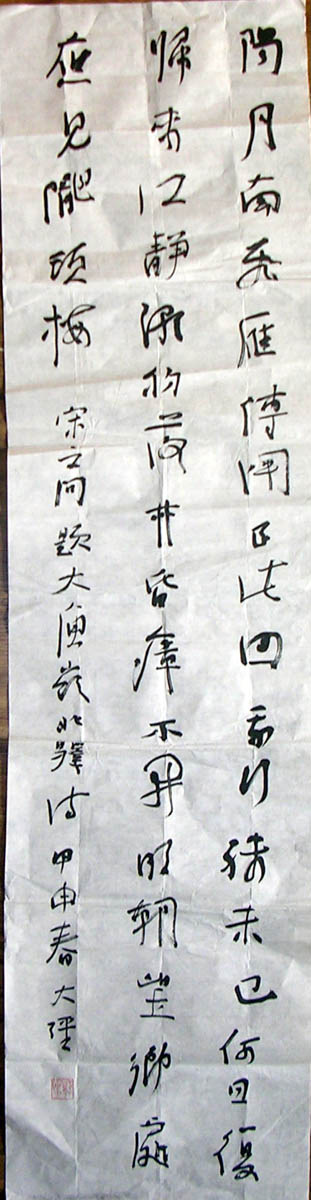 陽月南飛雁傳聞至此回我行殊未已何日復
歸來江靜潮初落林昏瘴不開明朝望鄉處
應見隴頭梅 宋之問題大庾嶺北驛詩 甲申春 大